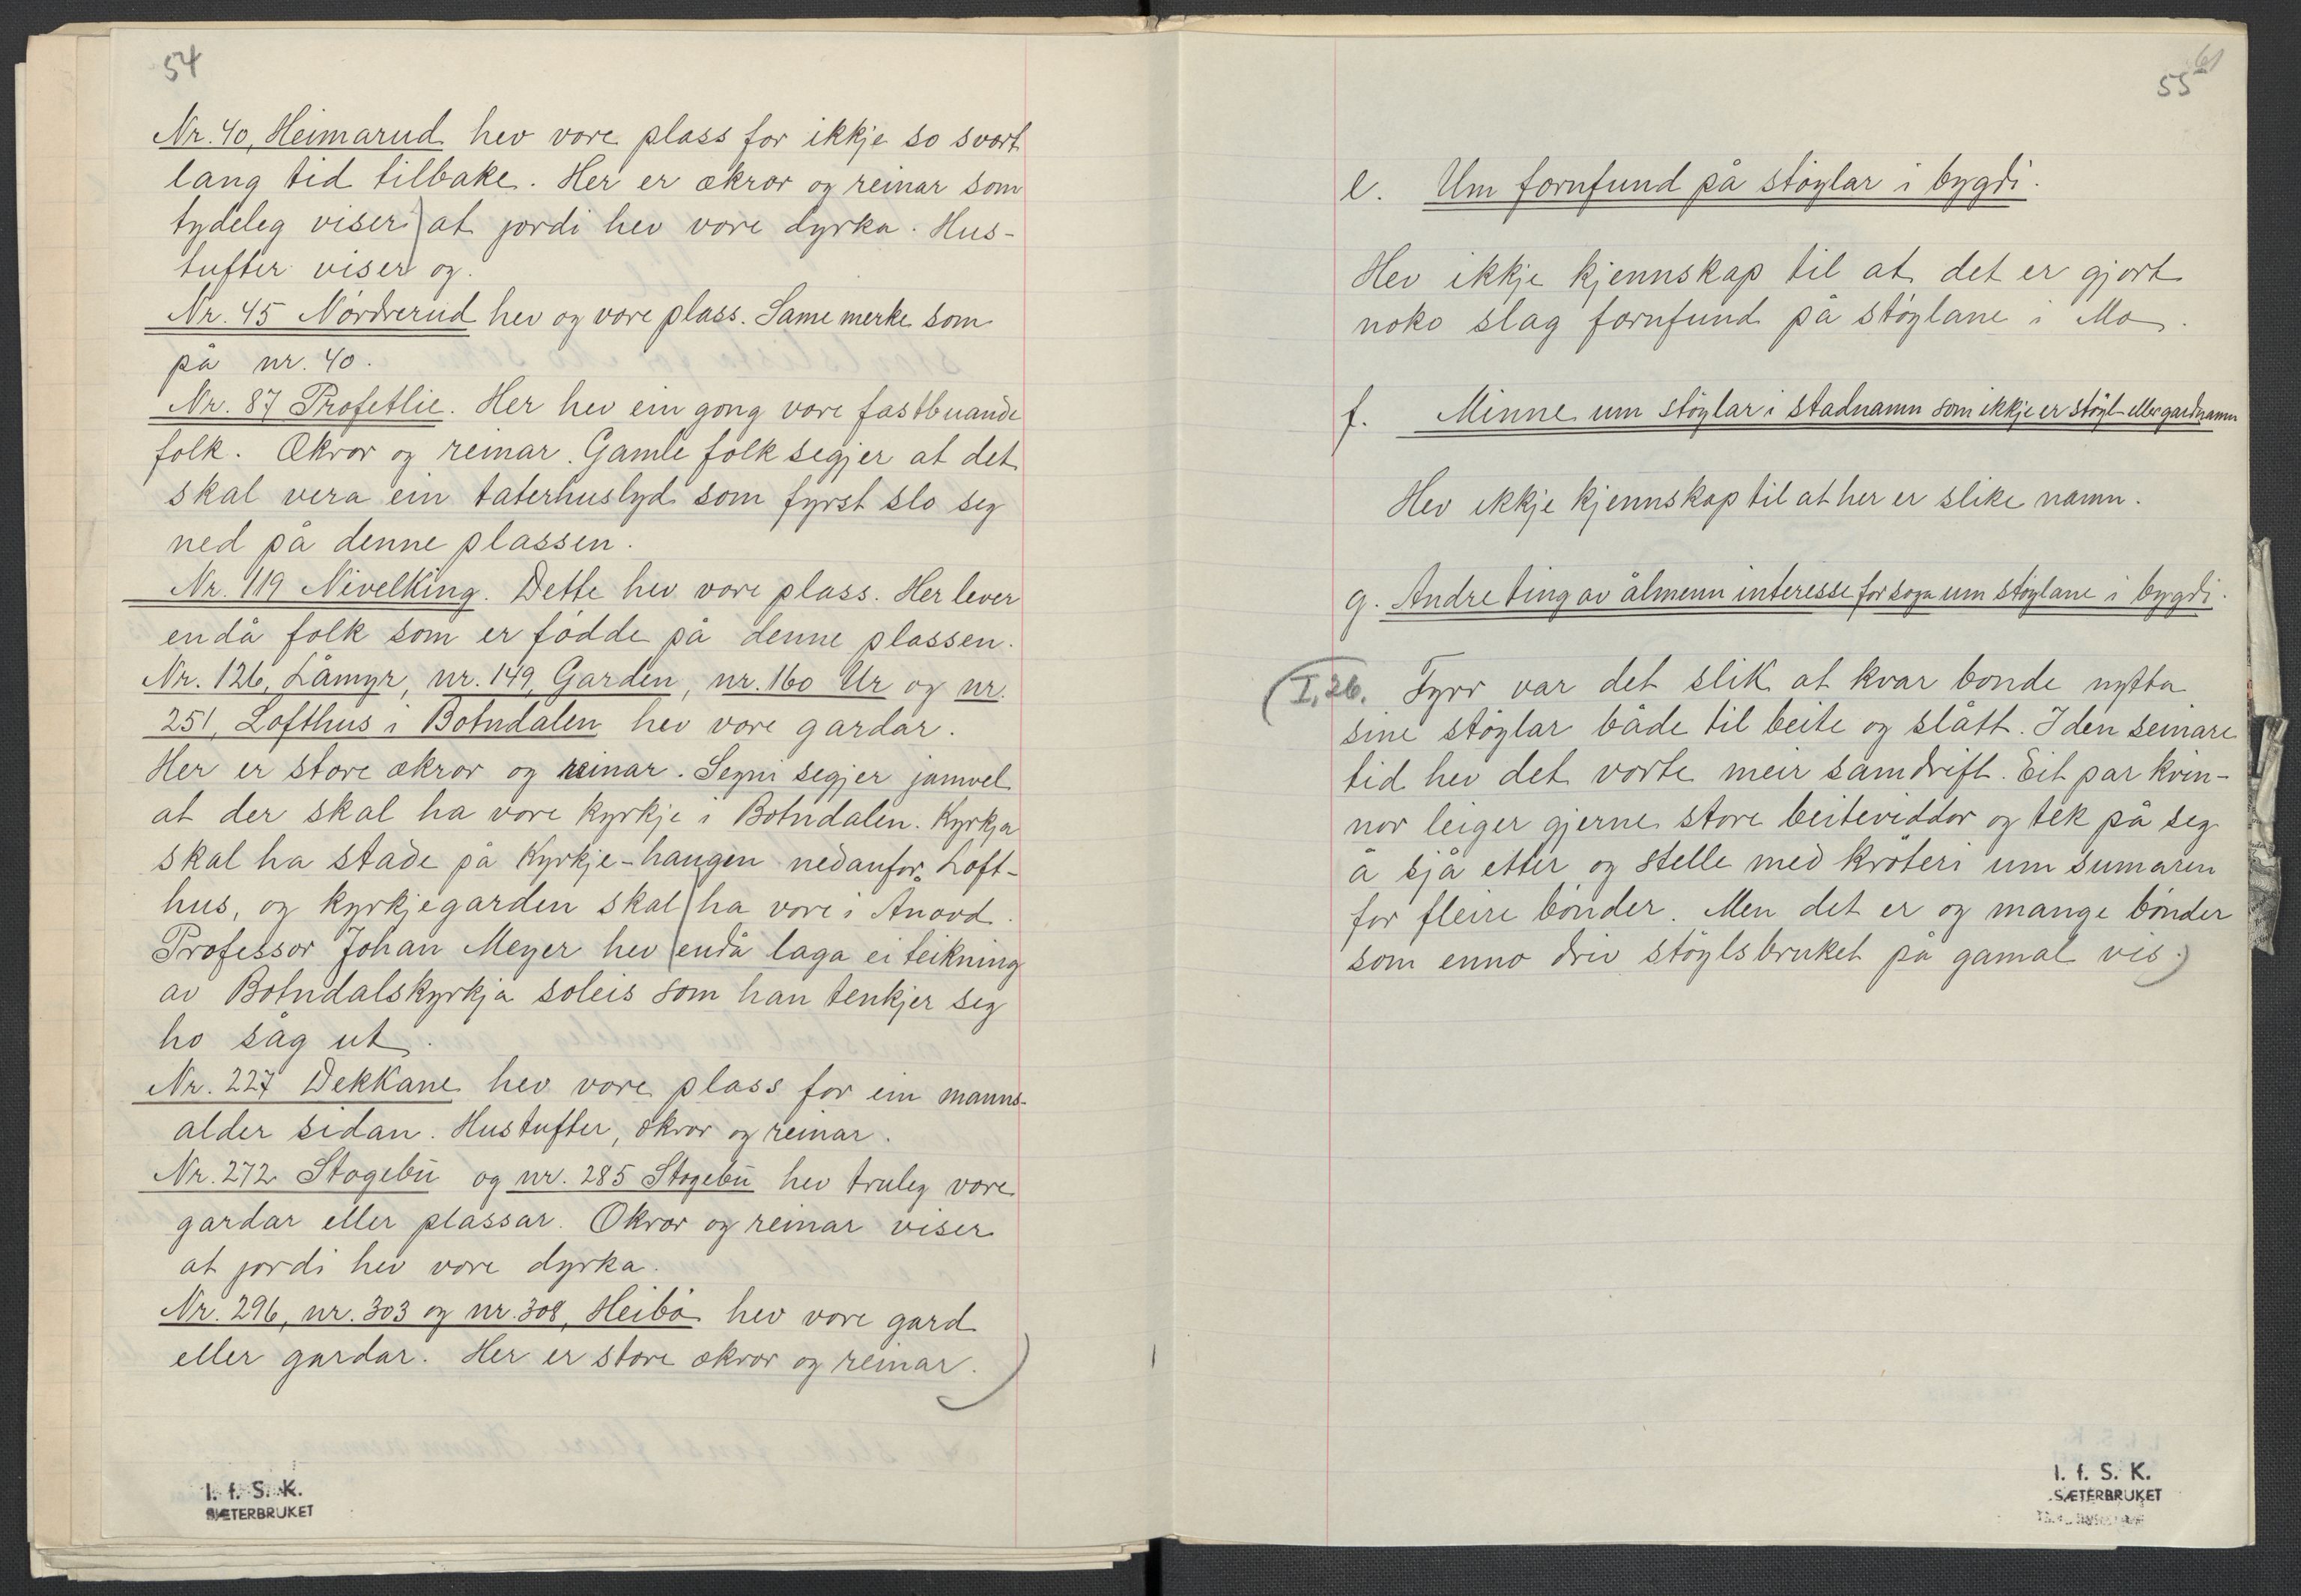 54
Nr. 40, Heimarud hev vore plass for ikkje so svært
lang tid tilbake. Her er ækrar og reinar som
tydeleg viser at jordi hev vore dyrka. Hus-
tufter viser og.
Nr. 45 Nørdrerud hev og vore plass. Same merke som
på nr. 40.
Nr. 87 Profetlie. Her hev ein gong vore fastbuande
folk. Økrar og reinar. Gamle folk segjer at det
skal vera ein taterhuslyd som fyrst slo seg
ned på denne plassen.
Nr. 119 Nivelking. Dette hev vore plass. Her lever
endå folk som er fødde på denne plassen.
Nr. 126, Låmyr, nr. 149, Garden, nr. 160 Ur og nr.
251, Lofthus i Botndalen hev vore gardar.
Her er store økror og reinar. Segni segjer jamvel
at der skal ha vore kyrkje i Botndalen. Kyrkja
skal ha stade på Kyrkje-haugen nedanfor Loft-
hus, og kyrkjegarden skal ha vore i Ånord.
Professor Johan Meyer hev endå laga ei teikning
av Botndalskyrkja soleis som han tenkjer seg
ho såg ut.
Nr. 227 Dekkane hev vore plass for ein manns-
alder sidan. Hustufter, økror og reinar.
Nr. 272 Stogebù og nr. 285 Stogebù hev truleg vore
gardar eller plassar. Økror og reinar viser
at jordi hev vore dyrka.
Nr. 296, nr. 303 og nr. 308, Heibø hev vore gard
eller gardar. Her er store økror og reinar.)
I. f. S. K.
SÆTERBRUKET
61
55
e. Um fornfund på støylar i bygdi.
Hev ikkje kjennskap til at det er gjort
noko slag fornfund på støylane i Mo.
f. Minne um støylar i stadnamn som ikkje er støyl- eller gardnamn
Hev ikkje kjennskap til at her er slike namn.
g. Andre ting av ålmenn interesse for soga um støylane i bygdi.
(I, 26. Fyrr var det slik at kvar bonde nytta
sine støylar både til beite og slått. I den seinare
tid hev det vorte meir samdrift. Eit par kvin-
nor leiger gjerne store beiteviddor og tek på seg
å sjå etter og stelle med krøteri um sumaren
for fleire bønder. Men det er og mange bønder
som enno driv støylsbruket på gamal vis.)
I. f. S. K.
SÆTERBRUKET